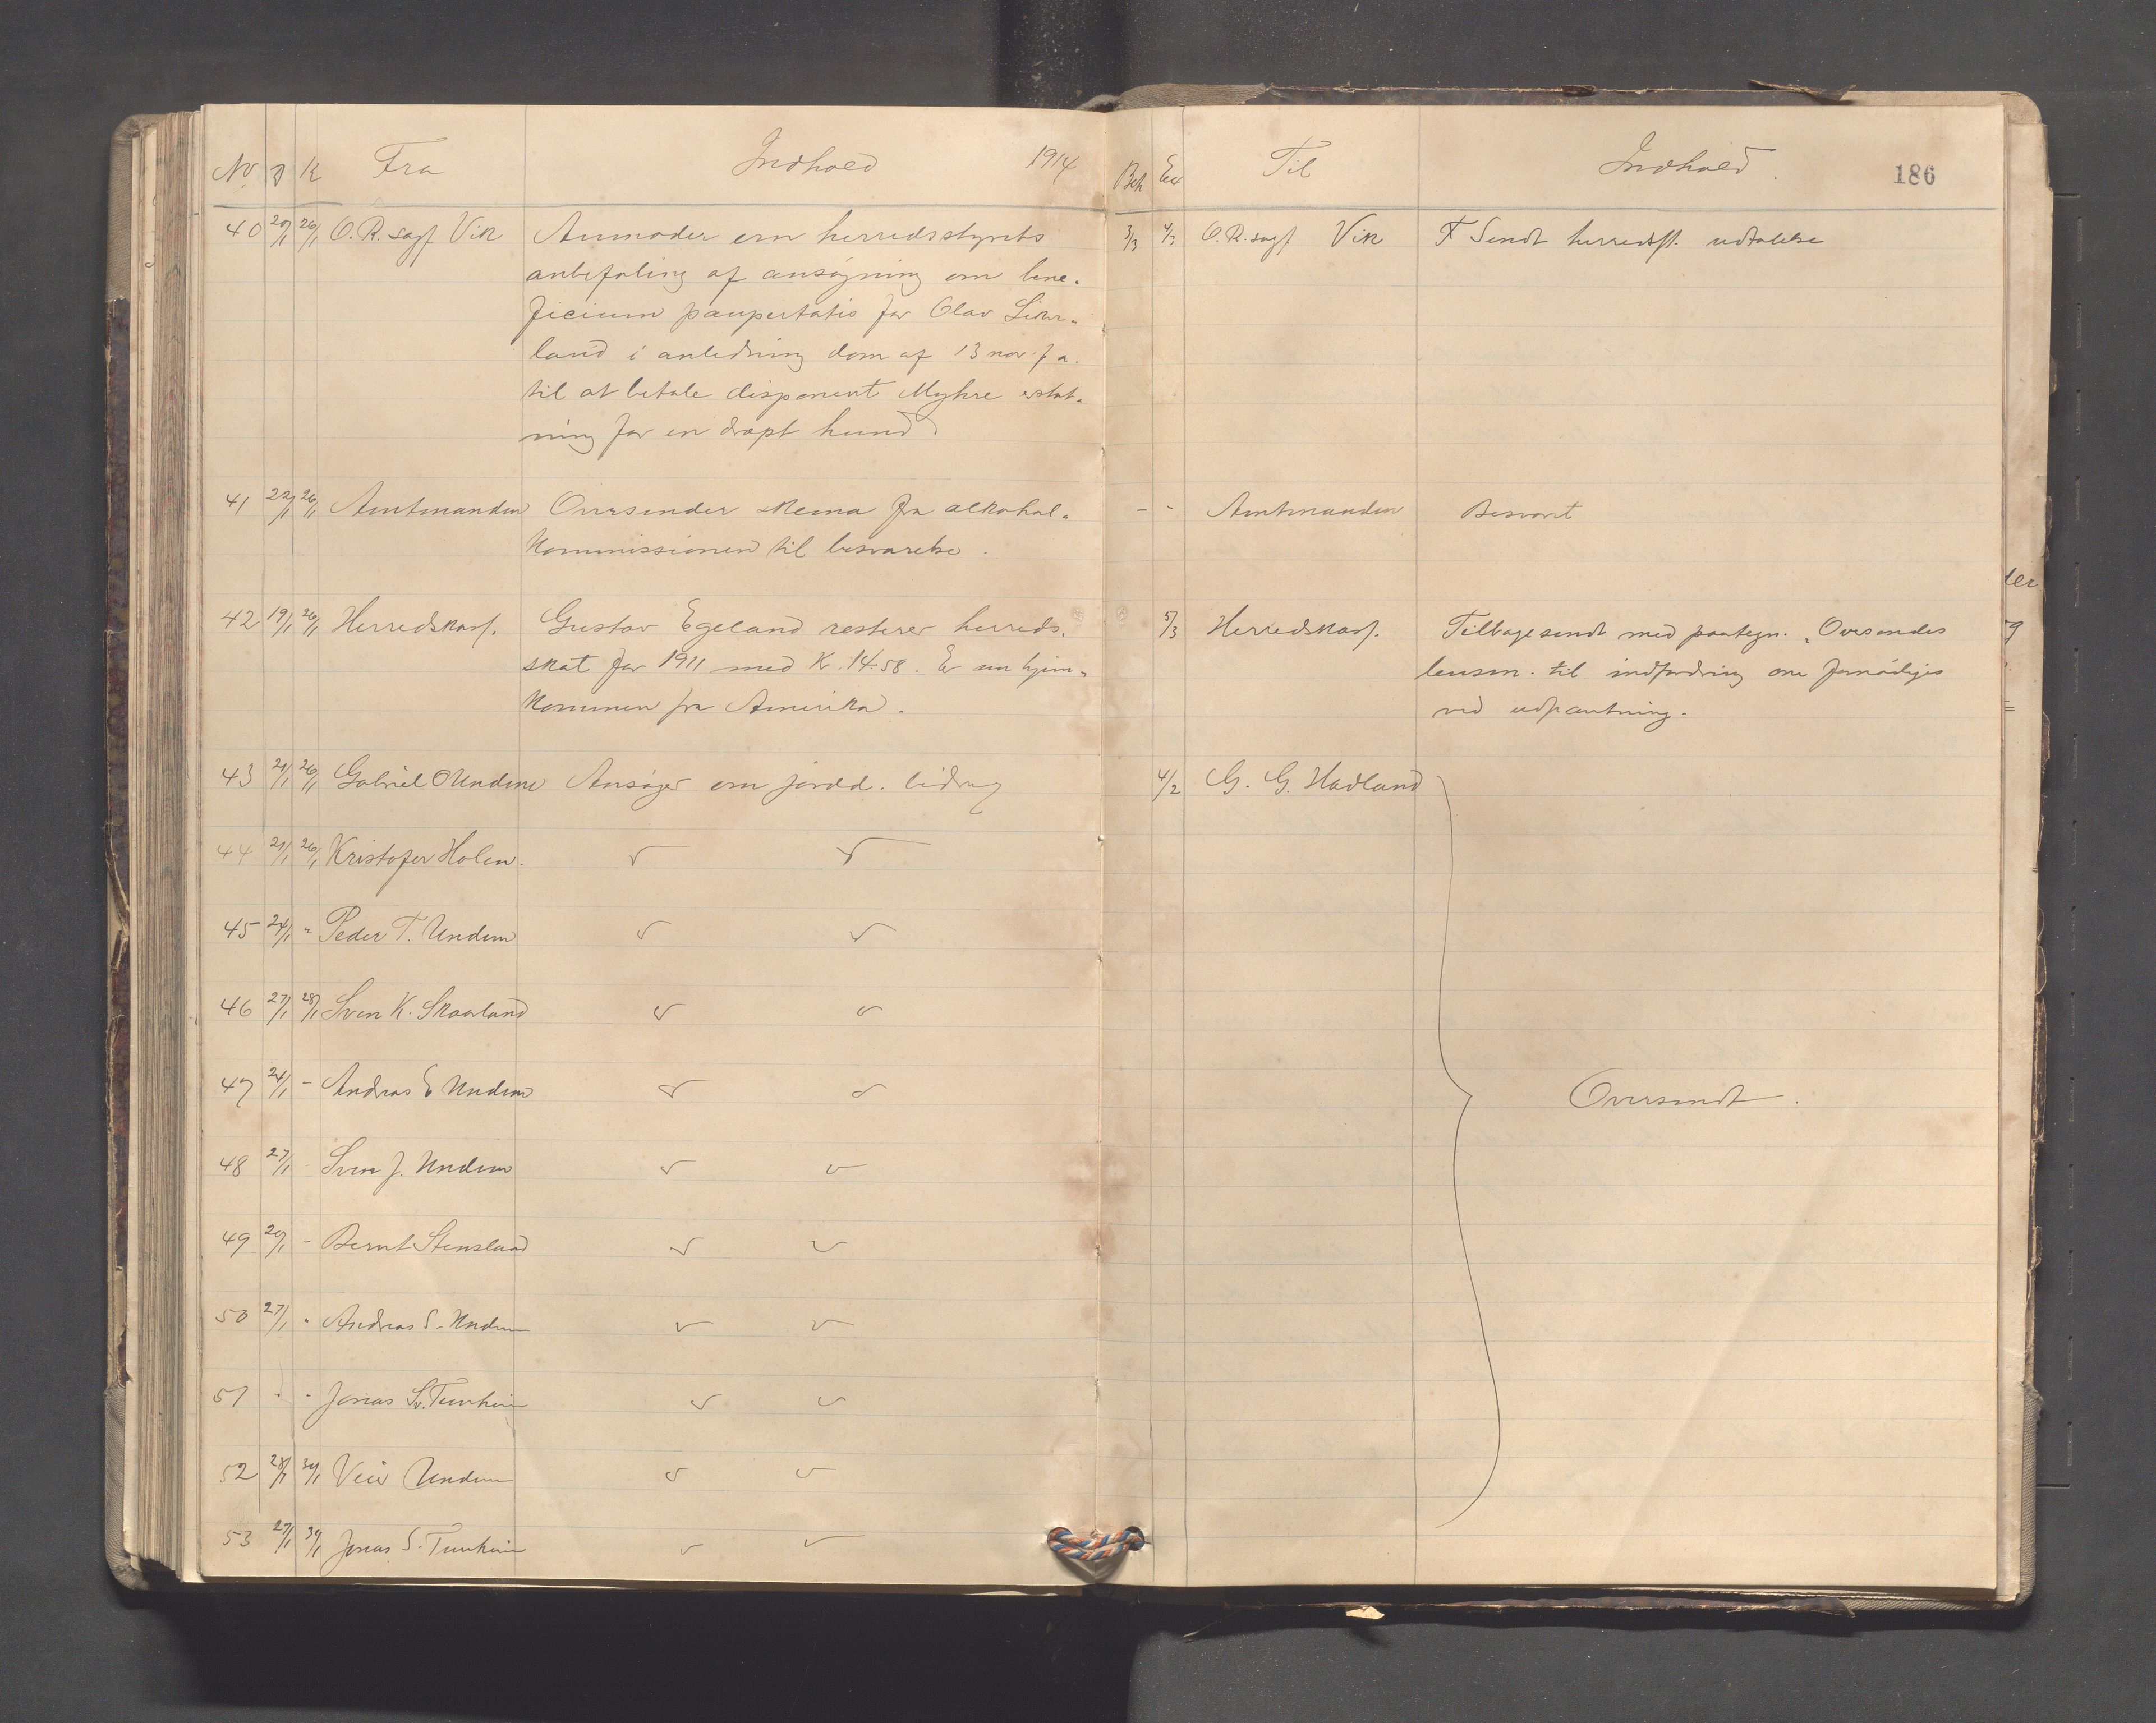 No D K Fra Indhold 1914
40 20/1 26/1 O.R.sagf Vik Anmoder om herredsstyrets
anbefaling af ansøgning om bene-
ficium paupertatis for Olav
land i anledning dom af 13 nov f a.
til at betale disponent Myhre erstat-
ning for en dræpt hund
41 22/1 26/1 Amtmanden Oversender skema fra alkohol-
kommissionen til besvarelse.
42 19/1 26/1 Herredskasf. Gustav Egeland resterer herreds-
skat for 1911 med Kr. 14.58. Er nu hjem-
kommen fra Amerika.
43 21/1 26/1 Gabriel O Undem Ansøger om jordd. bidrag
44 21/1 26/1 Kristofer Holen.
45 24/1 " Peder T. Undem
46 27/1 28/1 Sven K. Skaarland
47 24/1 - Andreas E Undem
48 27/1 Sven J. Undem
49 20/1 - Bernt Stensland
50 27/1 " Andreas S. Undem
51 " " Jonas Sv. Tunheim
52 28/1 30/1 Undem
53 27/1 30/1 Jonas S. Tunheim
Beh Ex Til Indhold. 186
3/3 4/3 O.R.sagf Vik F Sendt herredsst. udtalelse
- - Amtmanden Besvart
5/3 Herredskasf. Tilbagesendt med paategn. "Oversendes
lensm. til indfordring om fornødiges
ved udpantning.
4/2 G. G. Hadland
Oversendt.